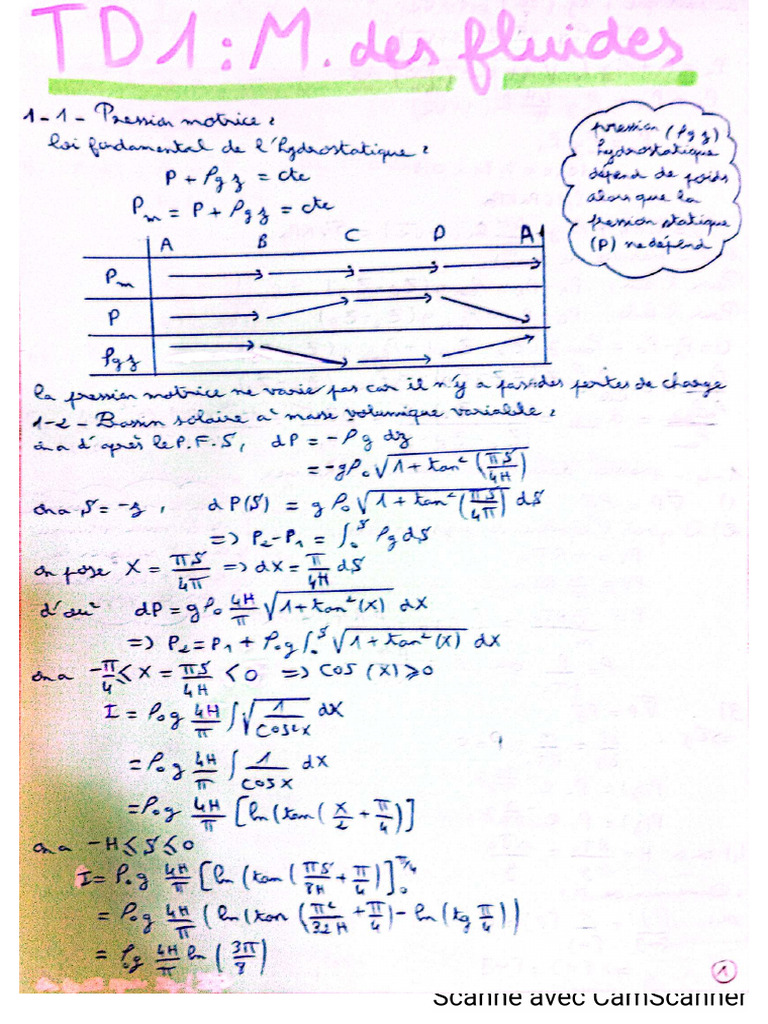 TD1 : M. des fluides
1-1- Pression motrice :
loi fondamental de l'hydrostatique :
P + ρgz = cte
Pm = P + ρgz = cte
pression (ρgz)
hydrostatique
dépend de poids
alors que la
pression statique
(P) ne dépend
A B C D A1
Pm
P
ρgz
la pression motrice ne varie pas car il n'y a pas des pertes de charge
1-2- Bassin solaire a masse volumique variable :
on a d'après le P.F.S, dP = -ρg dz
= -gρ₀ √(1+tan²(πS/4H))
on a, S = -z, dP(S) = gρ₀ √(1+tan²(πS/4π)) dS
=> P₂-P₁ = ∫₀^S ρg dS
on pose X = πS/4π => dX = π/4H dS
d'où dP = gρ₀ 4H/π √(1+tan²(X)) dX
=> P₂ = P₁ + ρ₀g ∫₀^S √(1+tan²(X)) dX
on a -π/4 ≤ X = πS/4H < 0 => cos(X) ≥ 0
I = ρ₀g 4H/π ∫ √(1/cos²X) dX
= ρ₀g 4H/π ∫ 1/cosX dX
= ρ₀g 4H/π [ln(tan(X/2 + π/4)]
on a -H ≤ S ≤ 0
I = ρ₀g 4H/π [ln(tan(πS/8H + π/4)]₀^π/4
= ρ₀g 4H/π (ln(tan(π²/32H + π/4) - ln(tg π/4))
= ρ₀g 4H/π ln(3π/8)
1
Scanné avec CamScanner